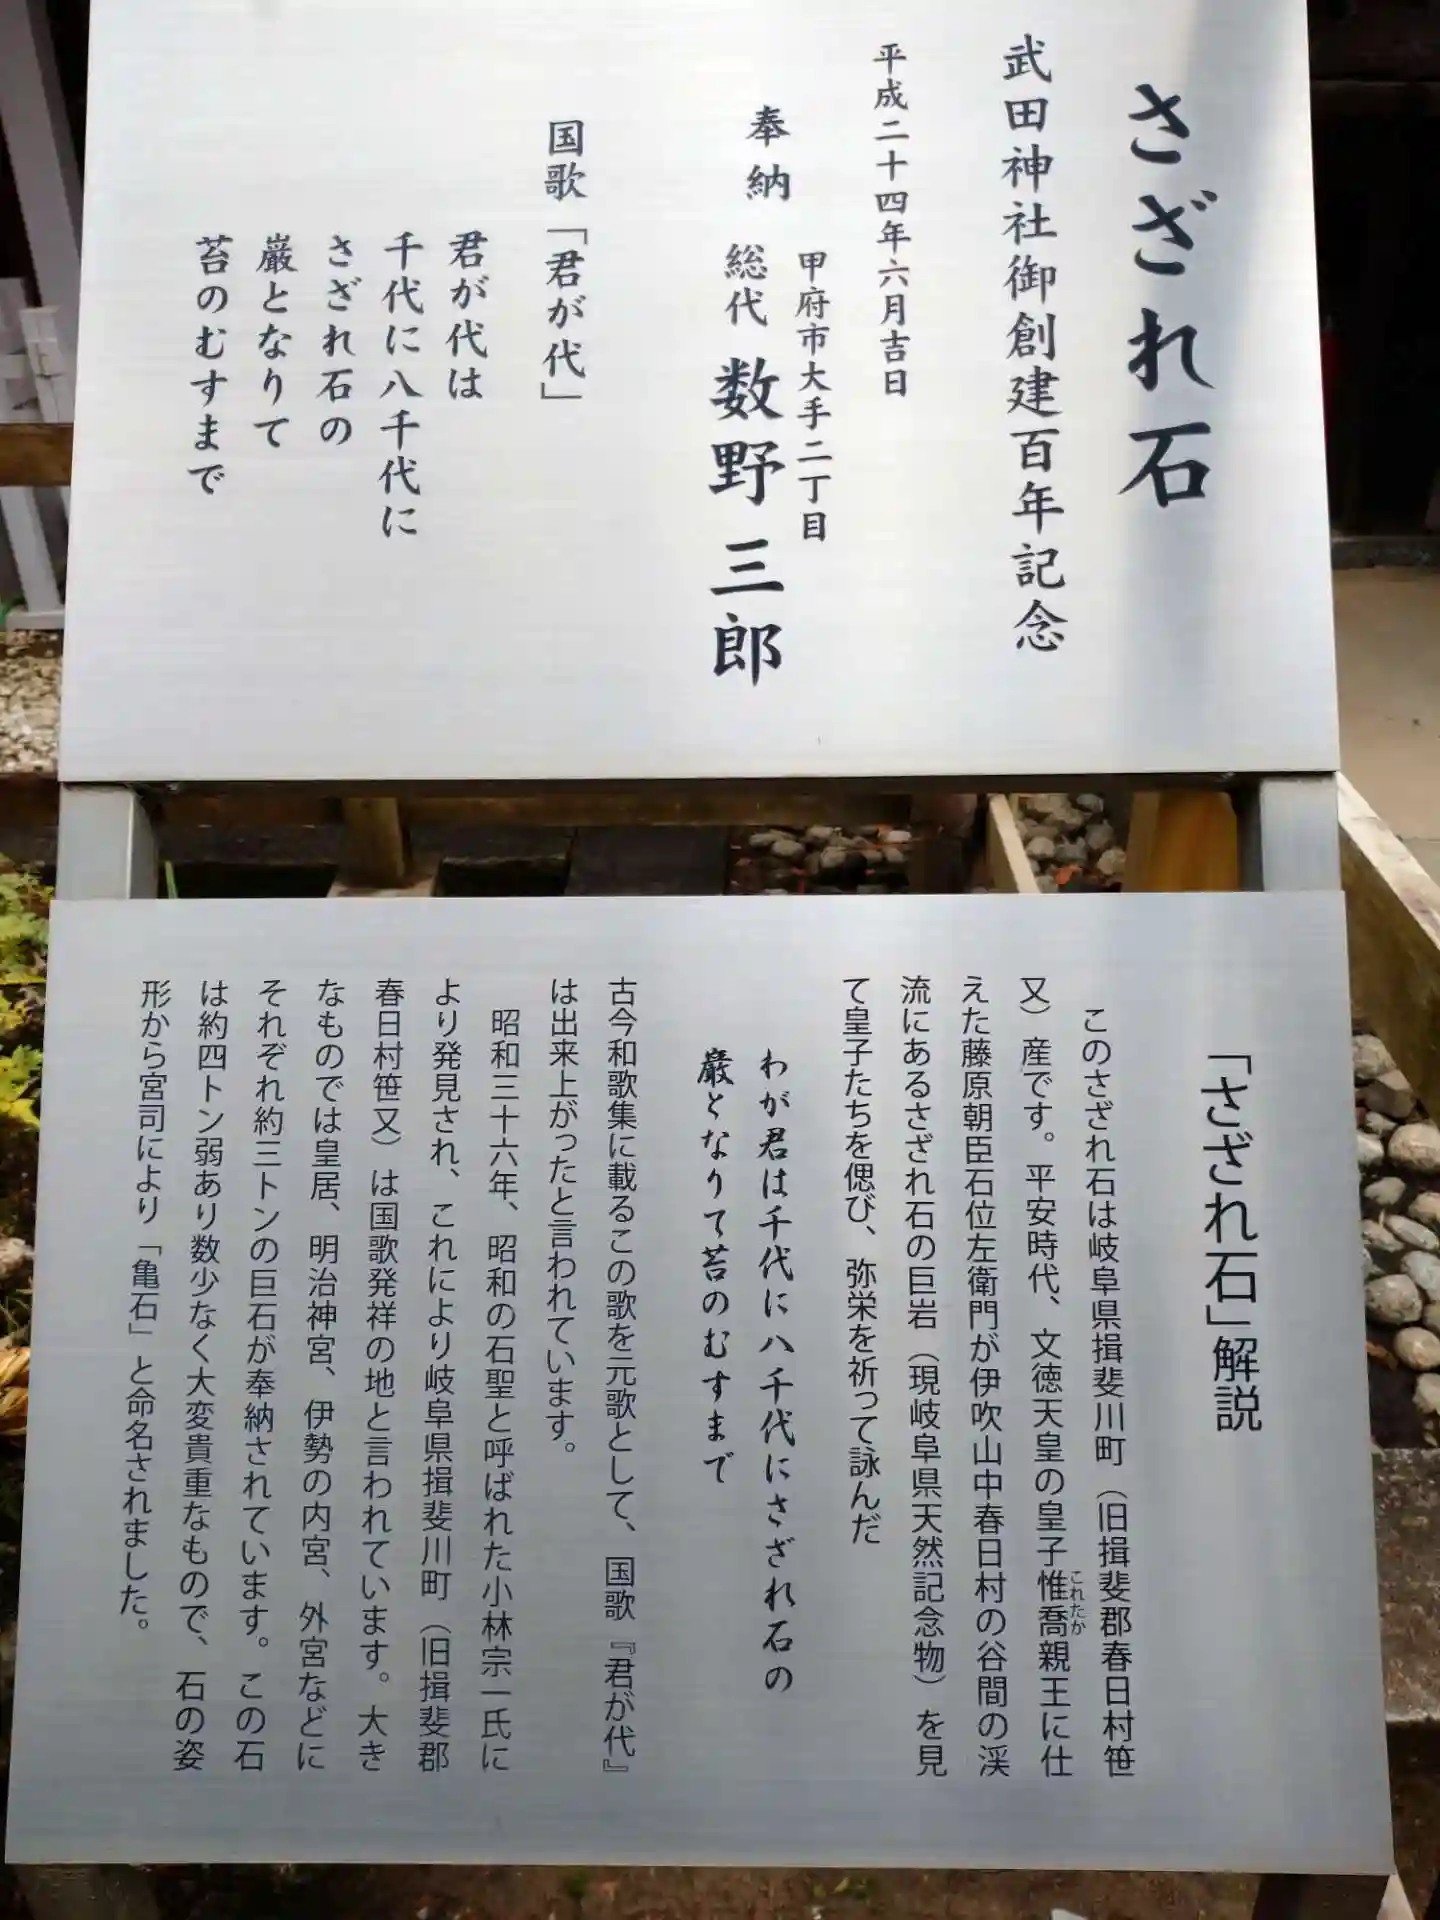 さざれ石
武田神社御創建百年記念
平成二十四年六月吉日
甲府市大手二丁目
奉納 総代 数野三郎
国歌「君が代」
君が代は
千代に八千代に
さざれ石の
巌となりて
苔のむすまで
「さざれ石」解説
このさざれ石は岐阜県揖斐川町（旧揖斐郡春日村笹
又）産です。平安時代、文徳天皇の皇子惟喬親王に仕
これたか
えた藤原朝臣石位左衛門が伊吹山中春日村の谷間の渓
流にあるさざれ石の巨岩（現岐阜県天然記念物）を見
て皇子たちを偲び、弥栄を祈って詠んだ
わが君は千代に八千代にさざれ石の
巌となりて苔のむすまで
古今和歌集に載るこの歌を元歌として、国歌『君が代』
は出来上がったと言われています。
昭和三十六年、昭和の石聖と呼ばれた小林宗一氏に
より発見され、これにより岐阜県揖斐川町（旧揖斐郡
春日村笹又）は国歌発祥の地と言われています。大き
なものでは皇居、明治神宮、伊勢の内宮、外宮などに
それぞれ約三トンの巨石が奉納されています。この石
は約四トン弱あり数少なく大変貴重なもので、石の姿
形から宮司により「亀石」と命名されました。